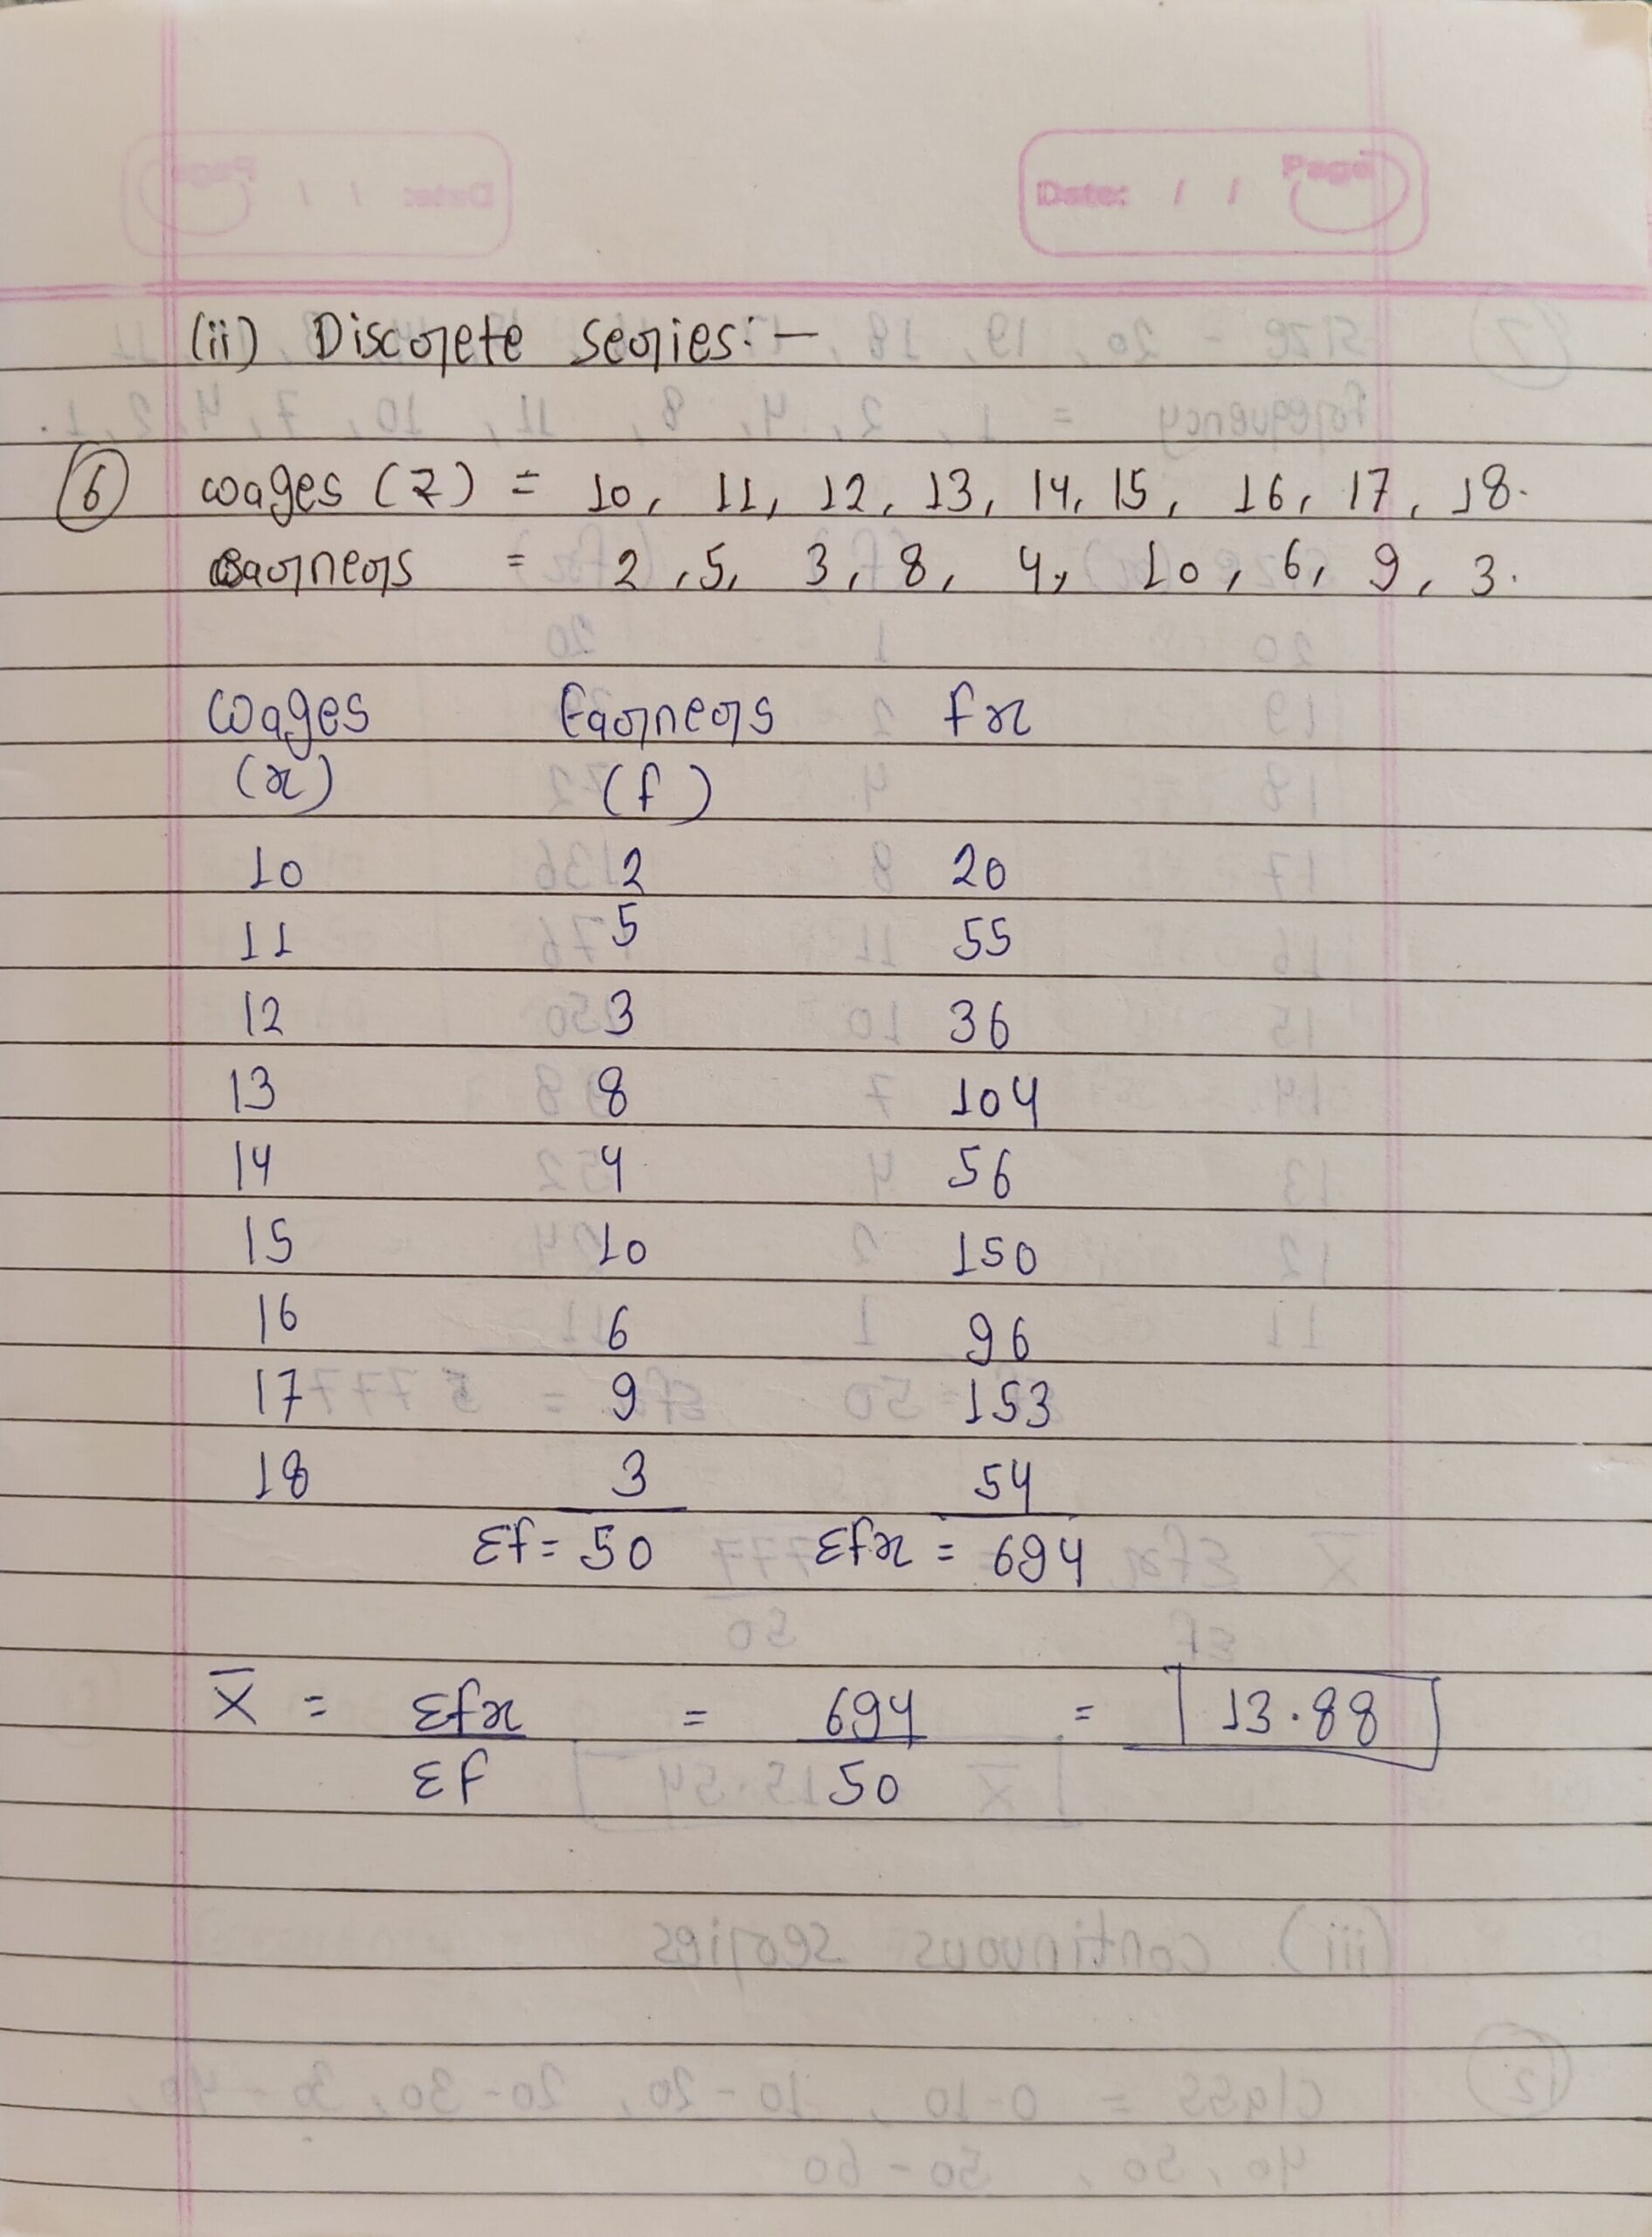 Page
Date: / /
(ii) Discrete series:-
6 wages (₹) = 10, 11, 12, 13, 14, 15, 16, 17, 18.
earners = 2, 5, 3, 8, 4, 10, 6, 9, 3.
Wages Earners fx
(x) (f)
10 2 20
11 5 55
12 3 36
13 8 104
14 4 56
15 10 150
16 6 96
17 9 153
18 3 54
Σf = 50 Σfx = 694
X̄ = Σfx = 694 = 13.88
Σf 50